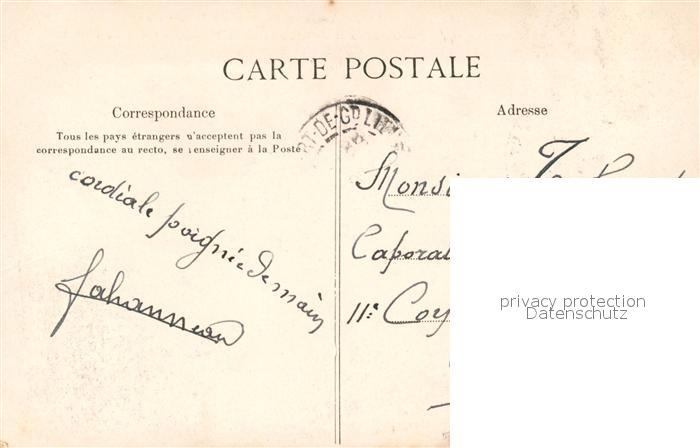 CARTE POSTALE
Correspondance
Tous les pays étrangers n'acceptent pas la
correspondance au recto, se renseigner à la Poste
Adresse
cordiale poignée de main
Monsi
Caporal
11e Co
privacy protection
Datenschutz